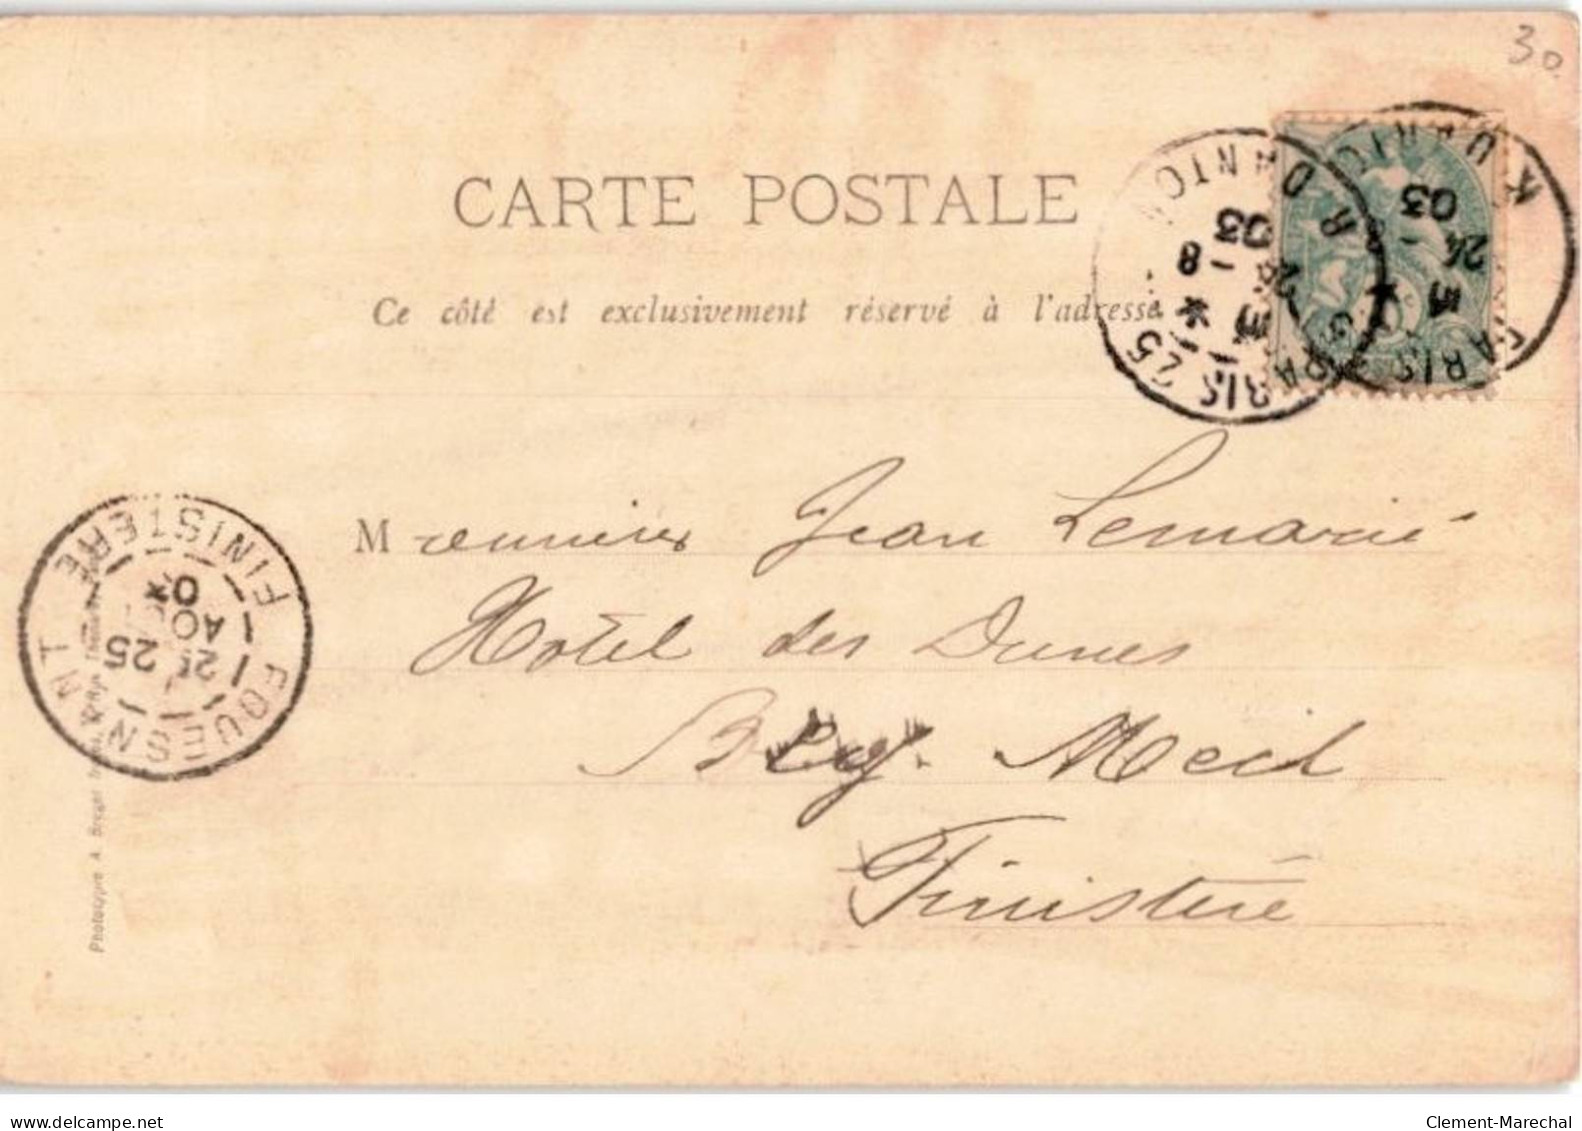 30
CARTE POSTALE
Ce côté est exclusivement réservé à l'adresse
PARIS 25 R DANTON
8 - 03
PARIS 25 R DANTON
24
03
Monsieur Jean Lemarié
Hotel des Dunes
Beg. Meil
Finistère
FOUESNANT FINISTERE
25
25
AOUT
03
Phototypie A. Breger
www.delcampe.net
Clement-Marechal